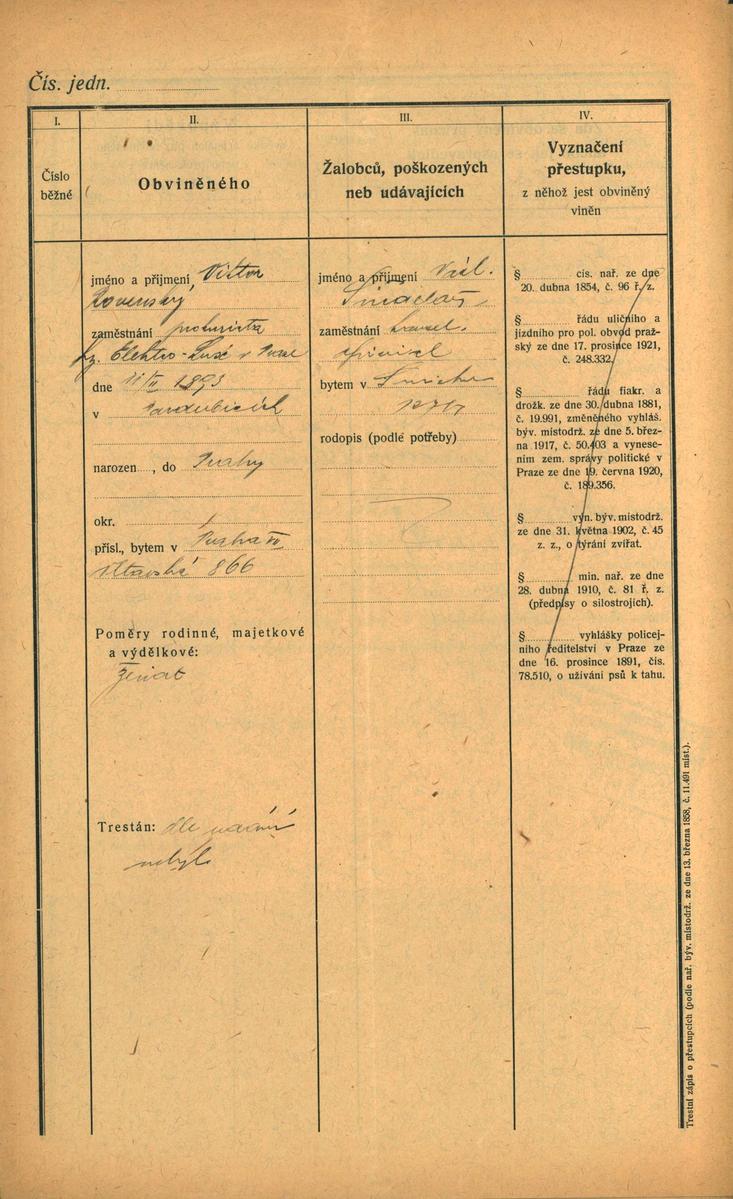 Čís. jedn.
I.
Číslo
běžné
II.
Obviněného
jméno a příjmení Viktor
Rovenský
zaměstnání prokurista
fy. Elektro-Lux v Praze
dne 11/II 1893
v Pardubicích
narozen, do Prahy
okr.
přísl., bytem v Praha VII
866
Poměry rodinné, majetkové
a výdělkové:
ženat
Trestán: dle udání
nebyl
III.
Žalobců, poškozených
neb udávajících
jméno a příjmení
zaměstnání
bytem v Smíchov
rodopis (podlé potřeby)
IV.
Vyznačení
přestupku,
z něhož jest obviněný
viněn
§ cís. nař. ze dne
20. dubna 1854, č. 96 ř. z.
§ řádu uličního a
jízdního pro pol. obvod praž-
ský ze dne 17. prosince 1921,
č. 248.332.
§ řádu fiakr. a
drožk. ze dne 30. dubna 1881,
č. 19.991, změněného vyhláš.
býv. místodrž. ze dne 5. břez-
na 1917, č. 50.403 a vynese-
ním zem. správy politické v
Praze ze dne 19. června 1920,
č. 189.356.
§ výn. býv. místodrž.
ze dne 31. května 1902, č. 45
z. z., o týrání zvířat.
§ min. nař. ze dne
28. dubna 1910, č. 81 ř. z.
(předpisy o silostrojích).
§ vyhlášky policej-
ního ředitelství v Praze ze
dne 16. prosince 1891, čís.
78.510, o užívání psů k tahu.
Trestní zápis o přestupcích (podle nař. býv. místodrž. ze dne 13. března 1858, č. 11.491 míst.).